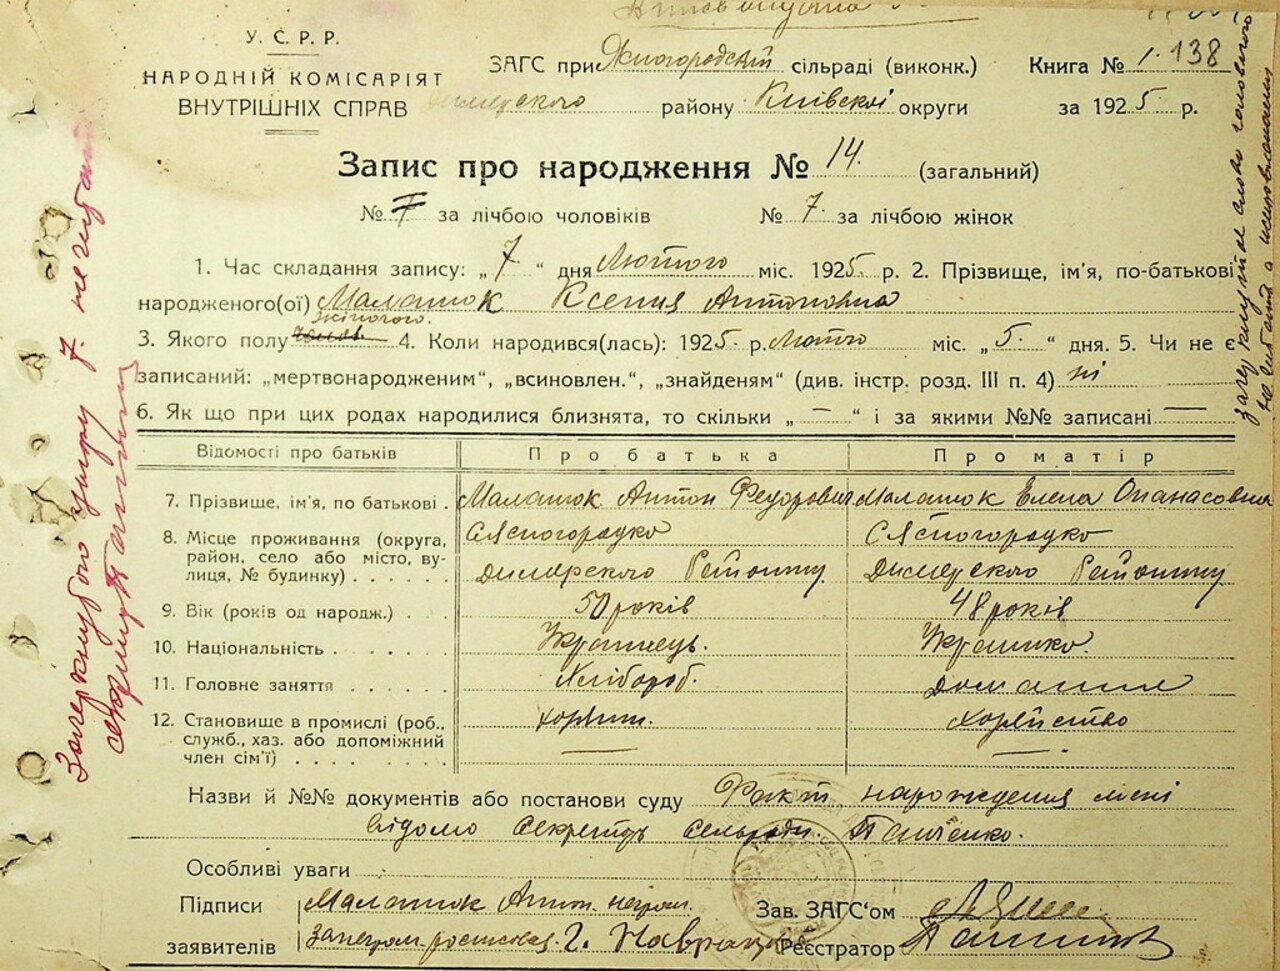 У. С. Р. Р.
НАРОДНІЙ КОМІСАРІЯТ
ВНУТРІШНІХ СПРАВ
ЗАГС при Ясногородскій сільраді (виконк.) Книга № 1. 138
Димерского району Київскоі округи за 1925 р.
Запис про народження № 14. (загальний)
№ 7 за лічбою чоловіків № 7. за лічбою жінок
1. Час складання запису: „ 7 “ дня Лютого міс. 1925 р. 2. Прізвище, ім'я, по-батькові
народженого(ої) Малашок Ксенія Антоновна
жіночого.
3. Якого полу чолов 4. Коли народився(лась): 1925. р. Лютго міс. „ 5. “ дня. 5. Чи не є
записаний: „мертвонародженим“, „всиновлен.“, „знайденям“ (див. інстр. розд. III п. 4) ні
6. Як що при цих родах народилися близнята, то скільки „ — “ і за якими №№ записані —
Відомості про батьків Про батька Про матір
7. Прізвище, ім'я, по батькові . Малашок Антон Федорович Малашок Елена Опанасовна
8. Місце проживання (округа, район, село або місто, вулиця, № будинку) . . . . . .
С Ясногородко С Ясногородко
Димерского Району Димерского Району
9. Вік (років од народж.) . . . 50 років 48 років
10. Національність . . . . . Українець. Українко.
11. Головне заняття . . . . . . Хлібороб. Домашнє
12. Становище в промислі (роб., служб., хаз. або допоміжний член сім'ї) . . . . . . .
хазяїство
— —
Назви й №№ документів або постанови суду Факт нарождения мені
відомо Секретарь сельради. Панченко.
Особливі уваги
Підписи Малашок Антон неграм. Зав. ЗАГС'ом
заявителів За неграм. росписовся Г. Реєстратор
Зачеркнутого цифру 7. не читать